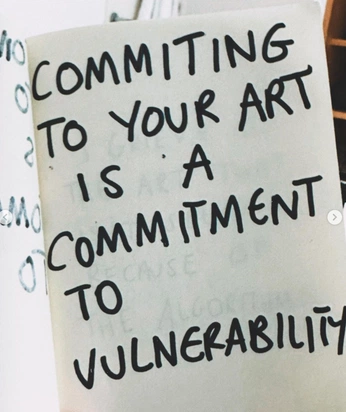 COMMITING
TO YOUR ART
IS A
COMMITMENT
TO
VULNERABILITY